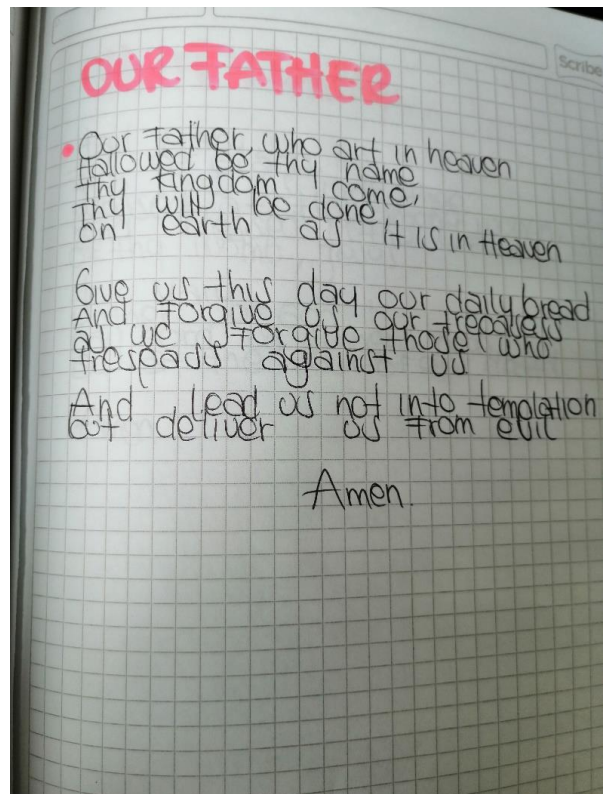 Scribe
OUR FATHER
Our Father, who art in heaven
Hallowed be thy name
Thy Kingdom come,
Thy will be done
on earth as it is in Heaven
Give us this day our daily bread
And forgive us our trepasless
as we forgive those who
trespass against us
And lead us not into temptation
but deliver us from evil
Amen.